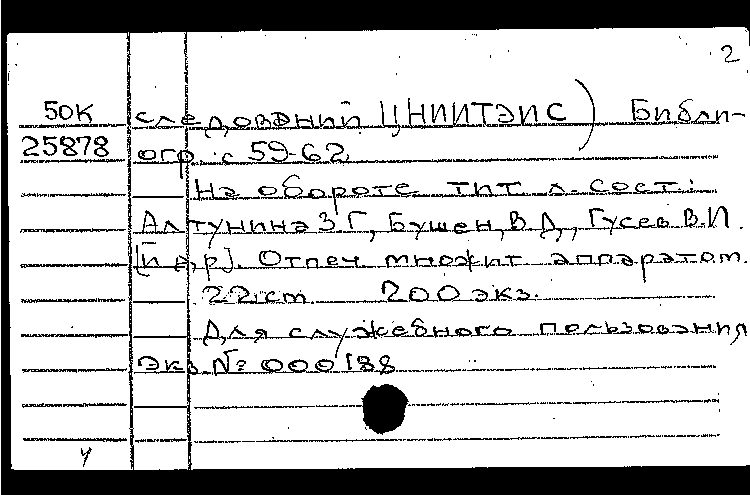 2
50К следований ЦНИИТЭИС) Библи-
25878 огр. с 59-62.
На обороте тит. л. сост.:
Алтунина З.Г, Бушен, В.Д., Гусев В.И.
[и др]. Отпеч множит аппаратом.
22 см. 200 экз.
Для служебного пользования
Экз № 000188